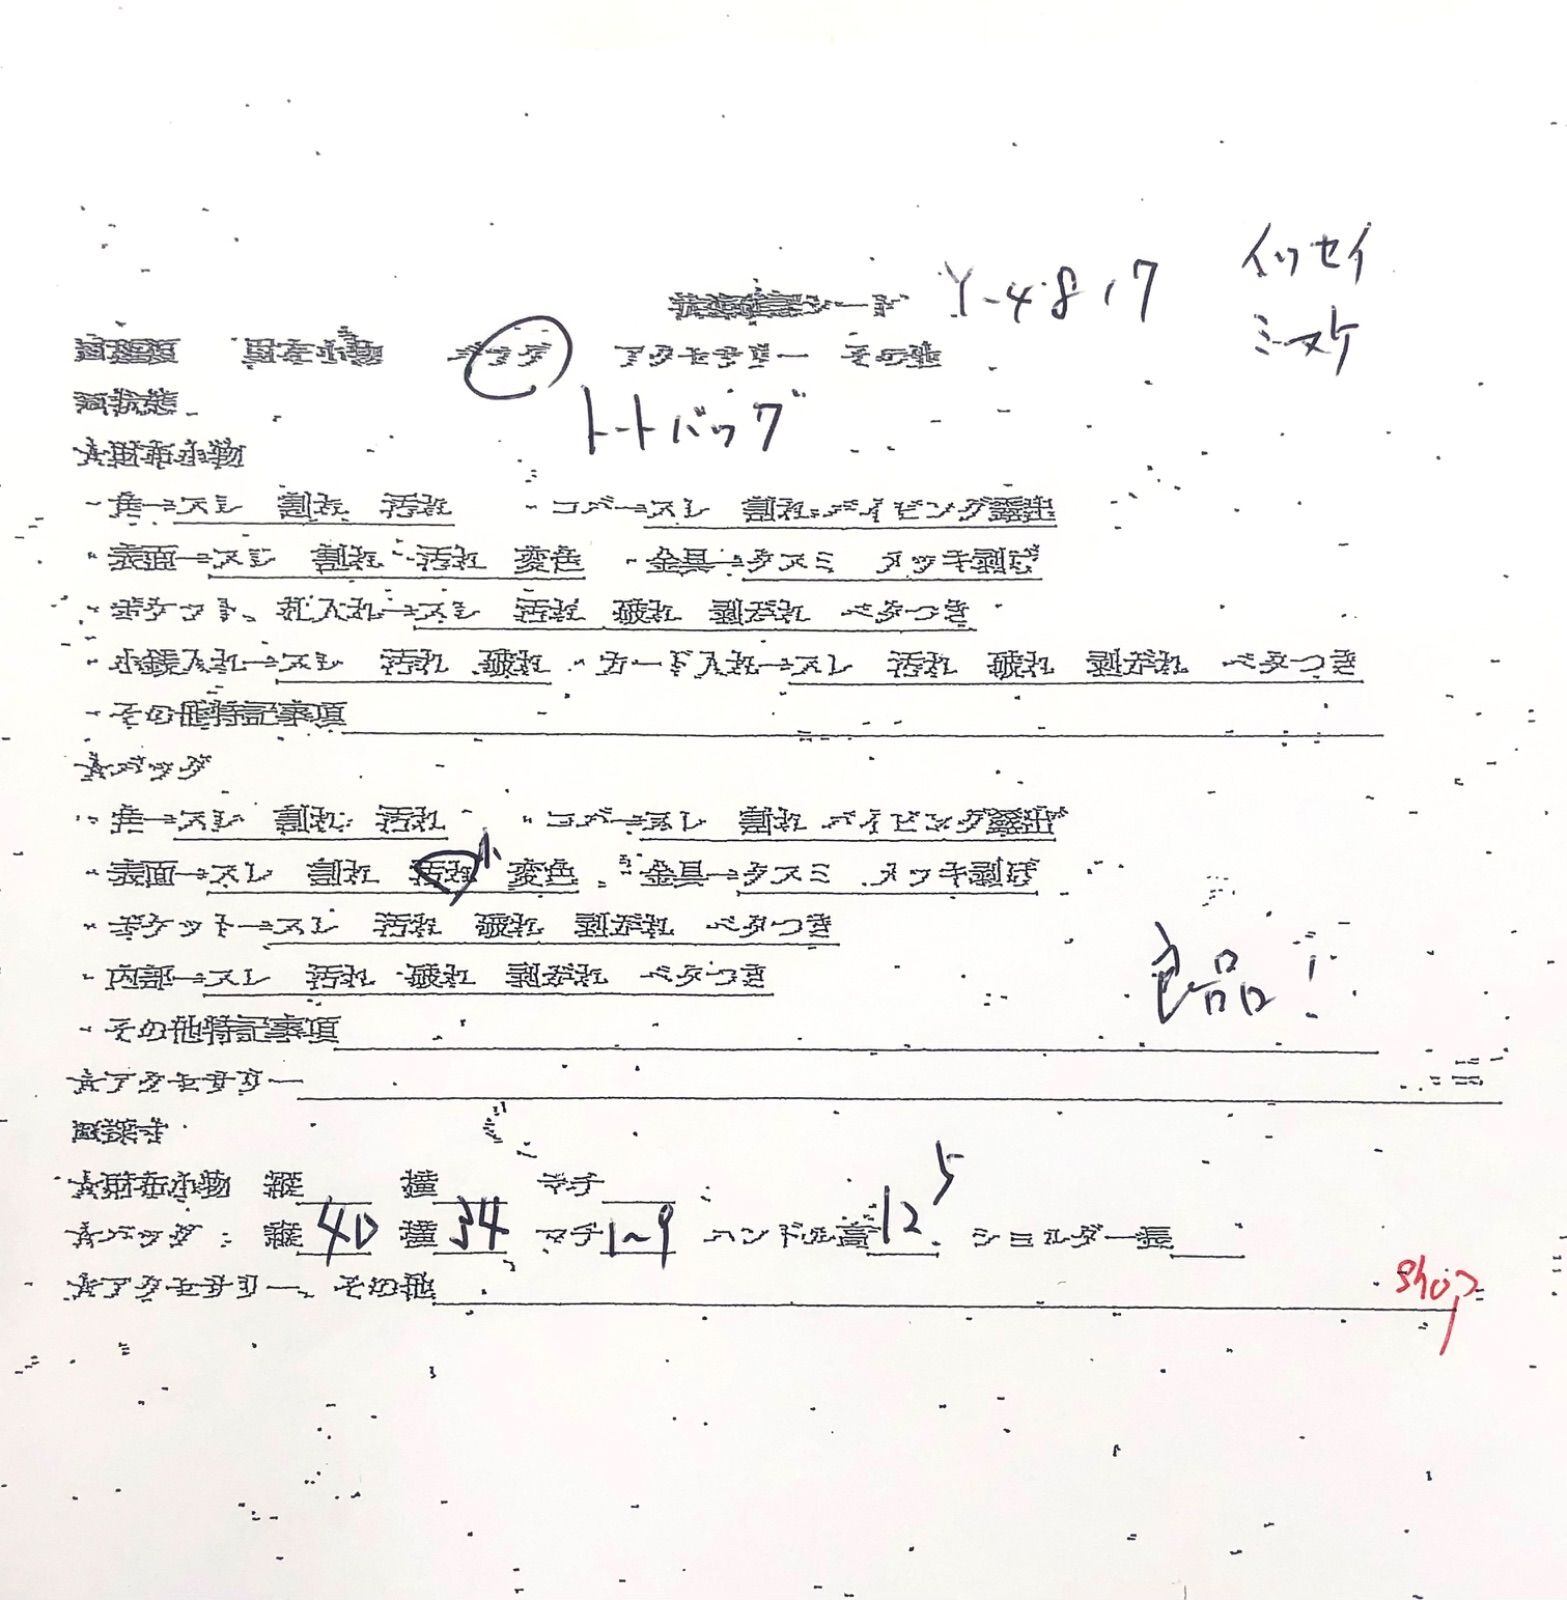 状態確認シート Y-4817 イッセイ
ミヤケ
財布小物 バッグ アクセサリー その他
トートバッグ
□状態
☆財布小物
・角→スレ 割れ 汚れ ・コバ→スレ 割れ パイピング露出
・表面→スレ 割れ 汚れ 変色 ・金具→クスミ メッキ剥げ
・ポケット、札入れ→スレ 汚れ 破れ 剥がれ ベタつき
・小銭入れ→スレ 汚れ 破れ ・カード入れ→スレ 汚れ 破れ 剥がれ ベタつき
・その他特記事項
☆バッグ
・角→スレ 割れ 汚れ ・コバ→スレ 割れ パイピング露出
・表面→スレ 割れ 汚れ 小 変色 ・金具→クスミ メッキ剥げ
・ポケット→スレ 汚れ 破れ 剥がれ ベタつき
・内部→スレ 汚れ 破れ 剥がれ ベタつき
良品!
・その他特記事項
☆アクセサリー
□採寸
☆財布小物 縦 横 マチ
☆バッグ 縦 40 横 34 マチ 1~9 ハンドル高 12.5 ショルダー長
☆アクセサリー、その他
shop